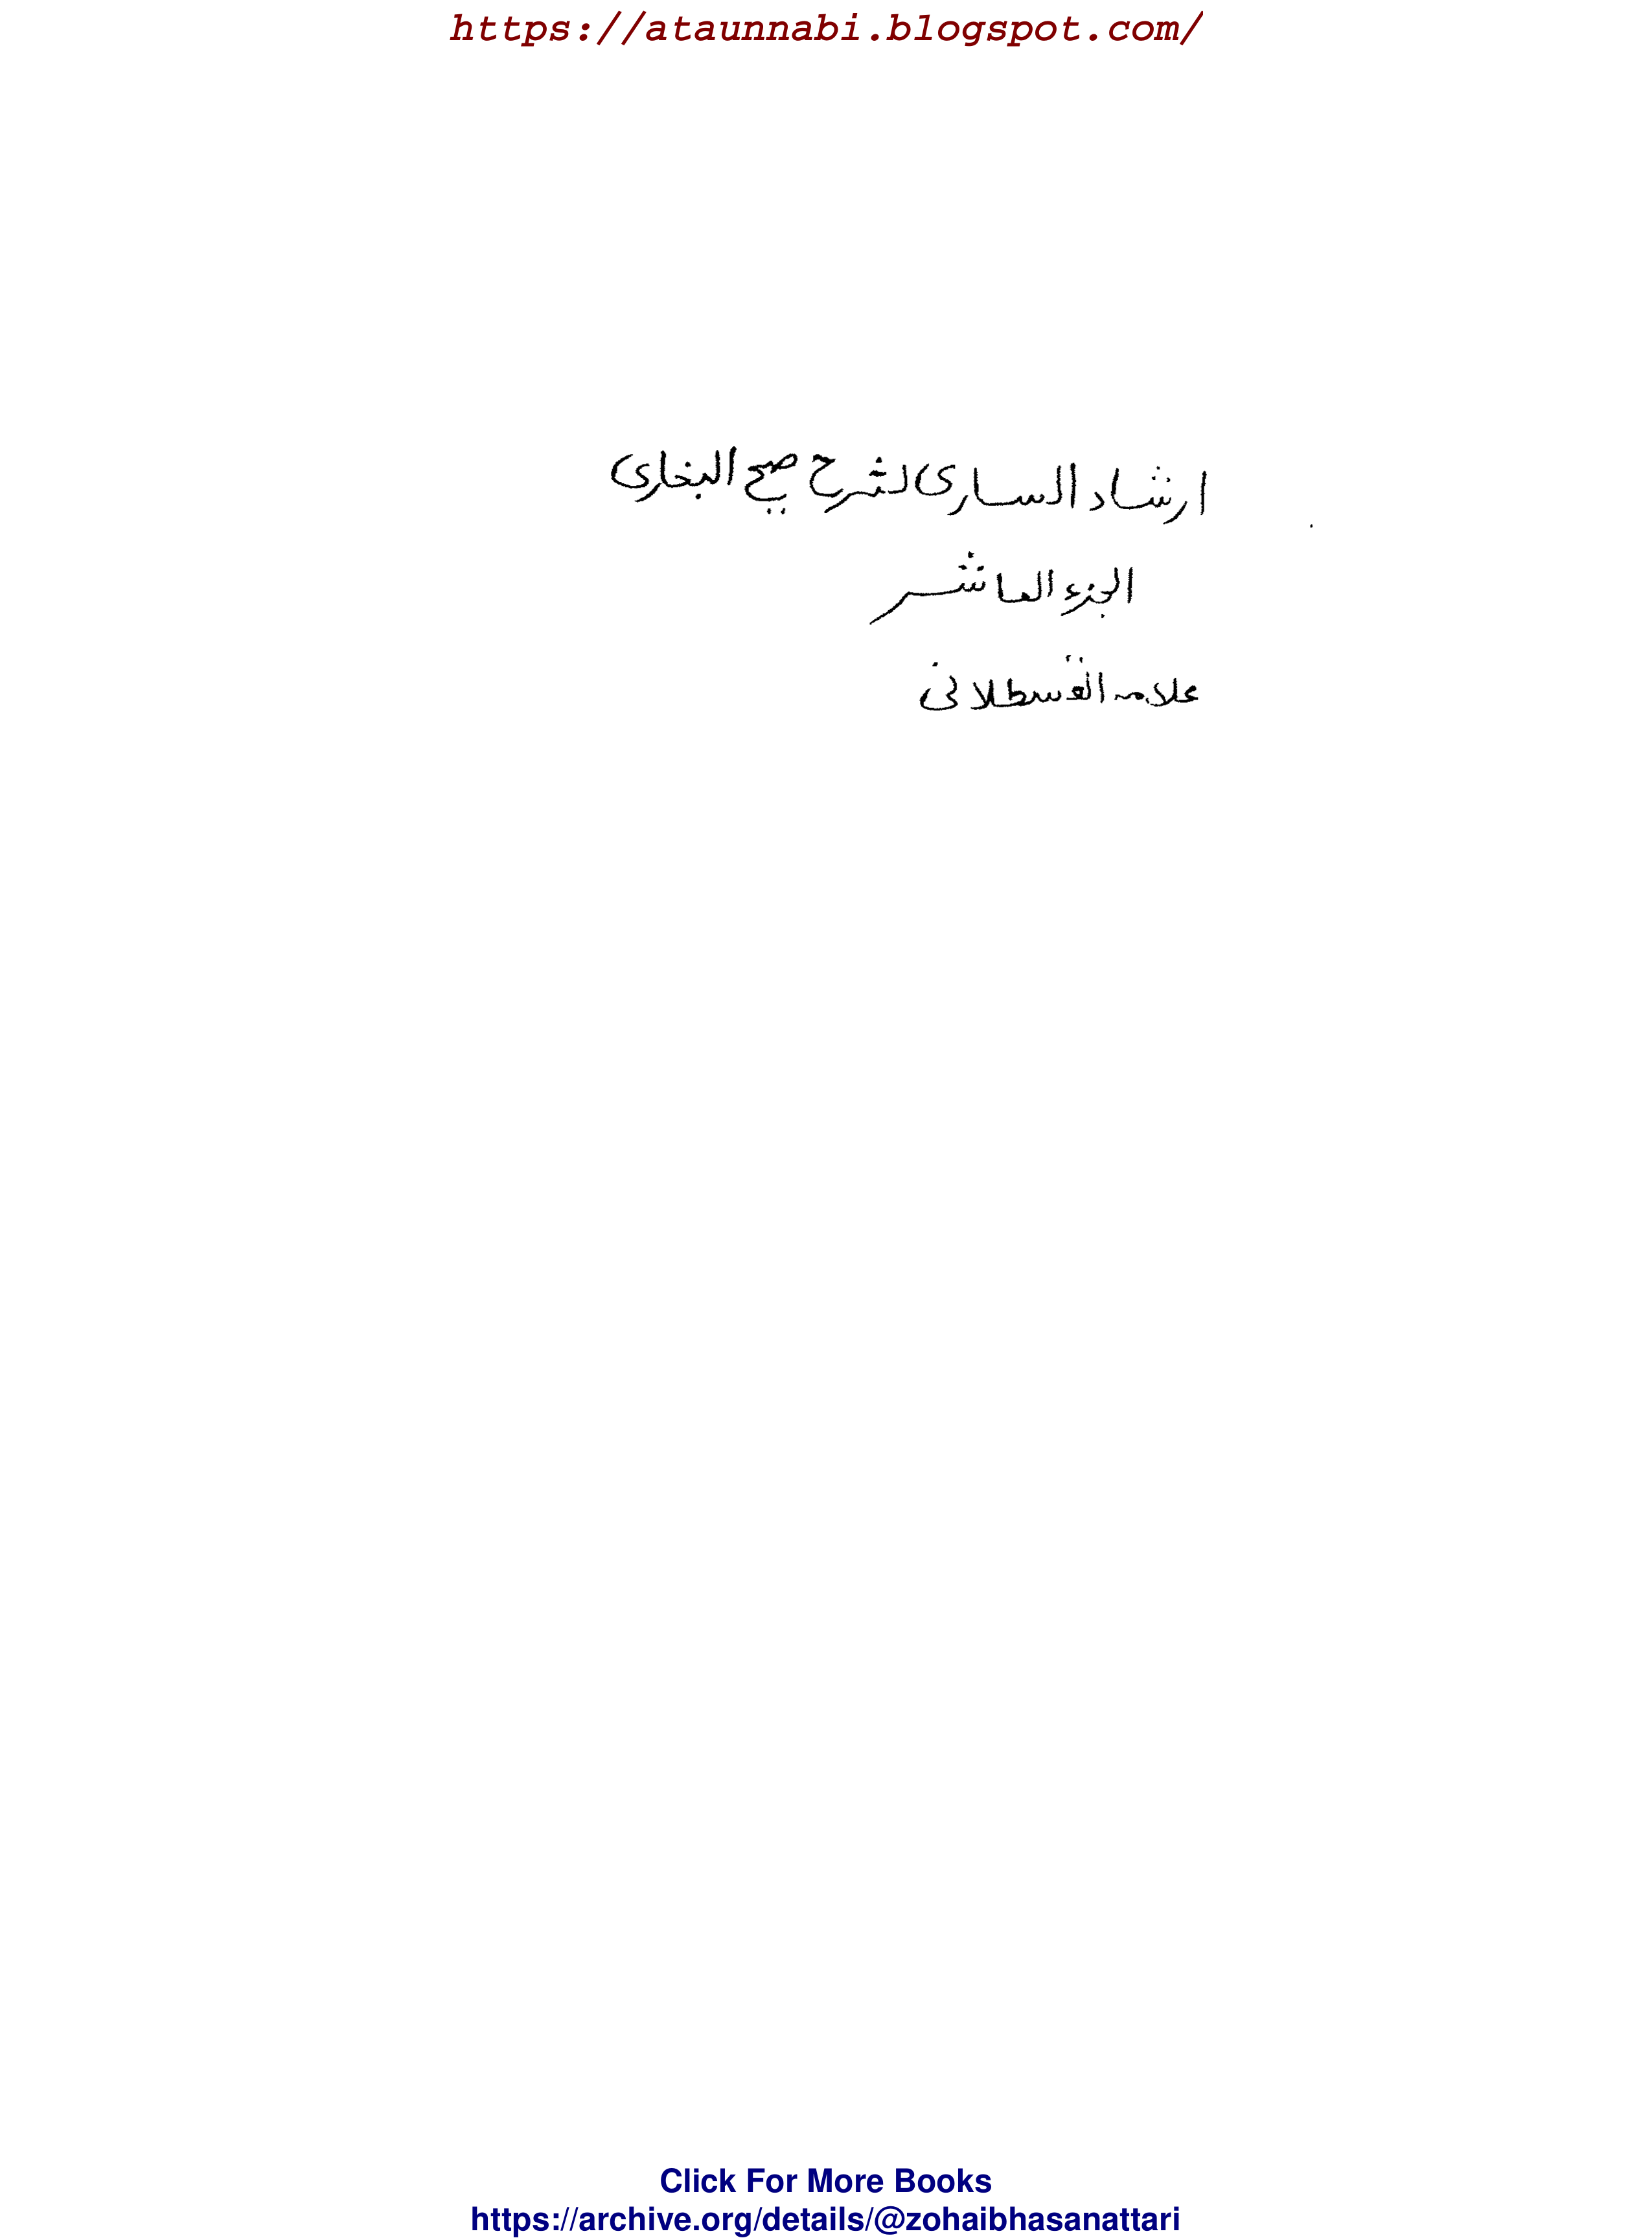 https://ataunnabi.blogspot.com/
ارشاد السارى لشرح صحيح البخارى
الجزء العاشر
علامه القسطلانى
Click For More Books
https://archive.org/details/@zohaibhasanattari